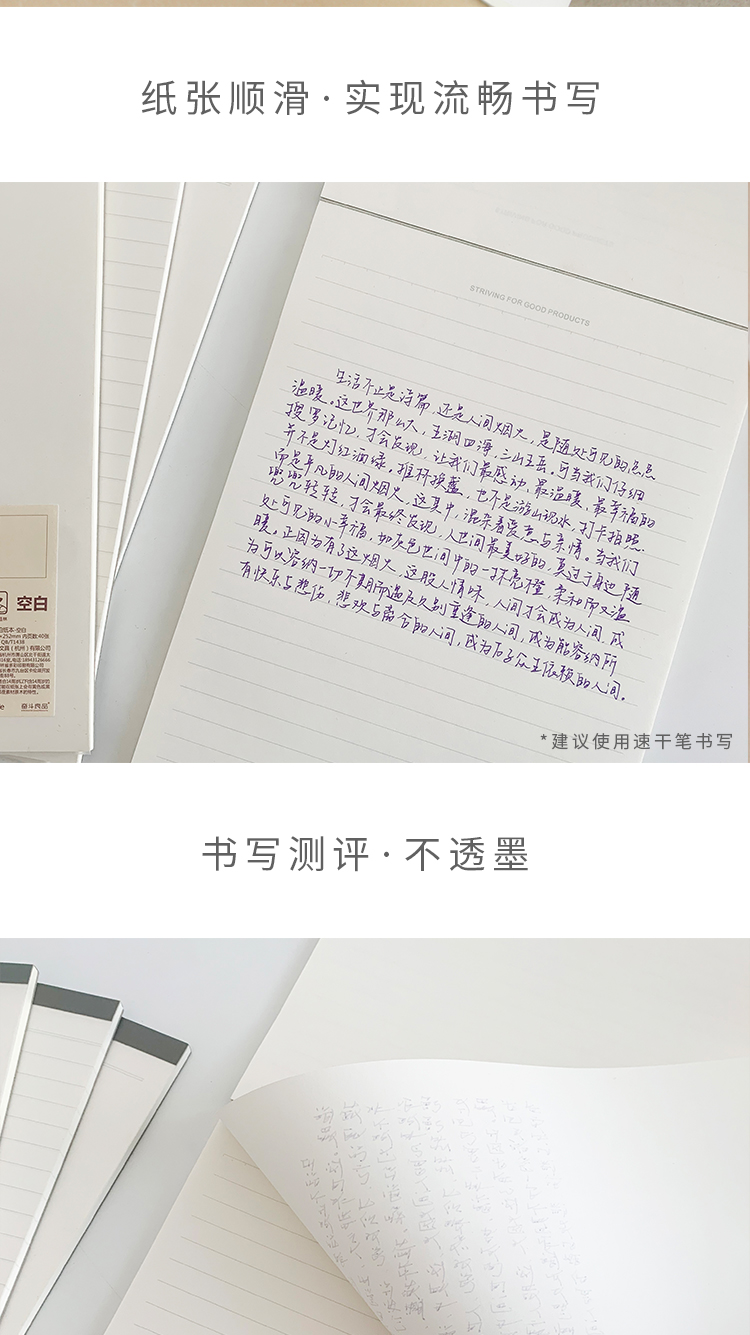 纸张顺滑·实现流畅书写
STRIVING FOR GOOD PRODUCTS
生活不止是诗篇,还是人间烟火,是随处可见的点点
温暖。这世界那么大,五湖四海,三山五岳。可当我们仔细
搜罗记忆,才会发现,让我们最感动、最温暖、最幸福的
并不是灯红酒绿,推杯换盏,也不是游山玩水,打卡拍照.
而是平凡的人间烟火。这其中,混杂着爱意与亲情。当我们
兜兜转转,才会最终发现,人世间最美好的,莫过于身边随
处可见的小幸福,如灰色世间中的一抹亮橙,柔和而又温
暖。正因为有了这烟火,这股人情味,人间才会成为人间,成
为可以容纳一切不期而遇及久别重逢的人间,成为能容纳所
有快乐与悲伤,悲欢与离合的人间,成为芸芸众生依赖的人间。
空白
*建议使用速干笔书写
书写测评·不透墨